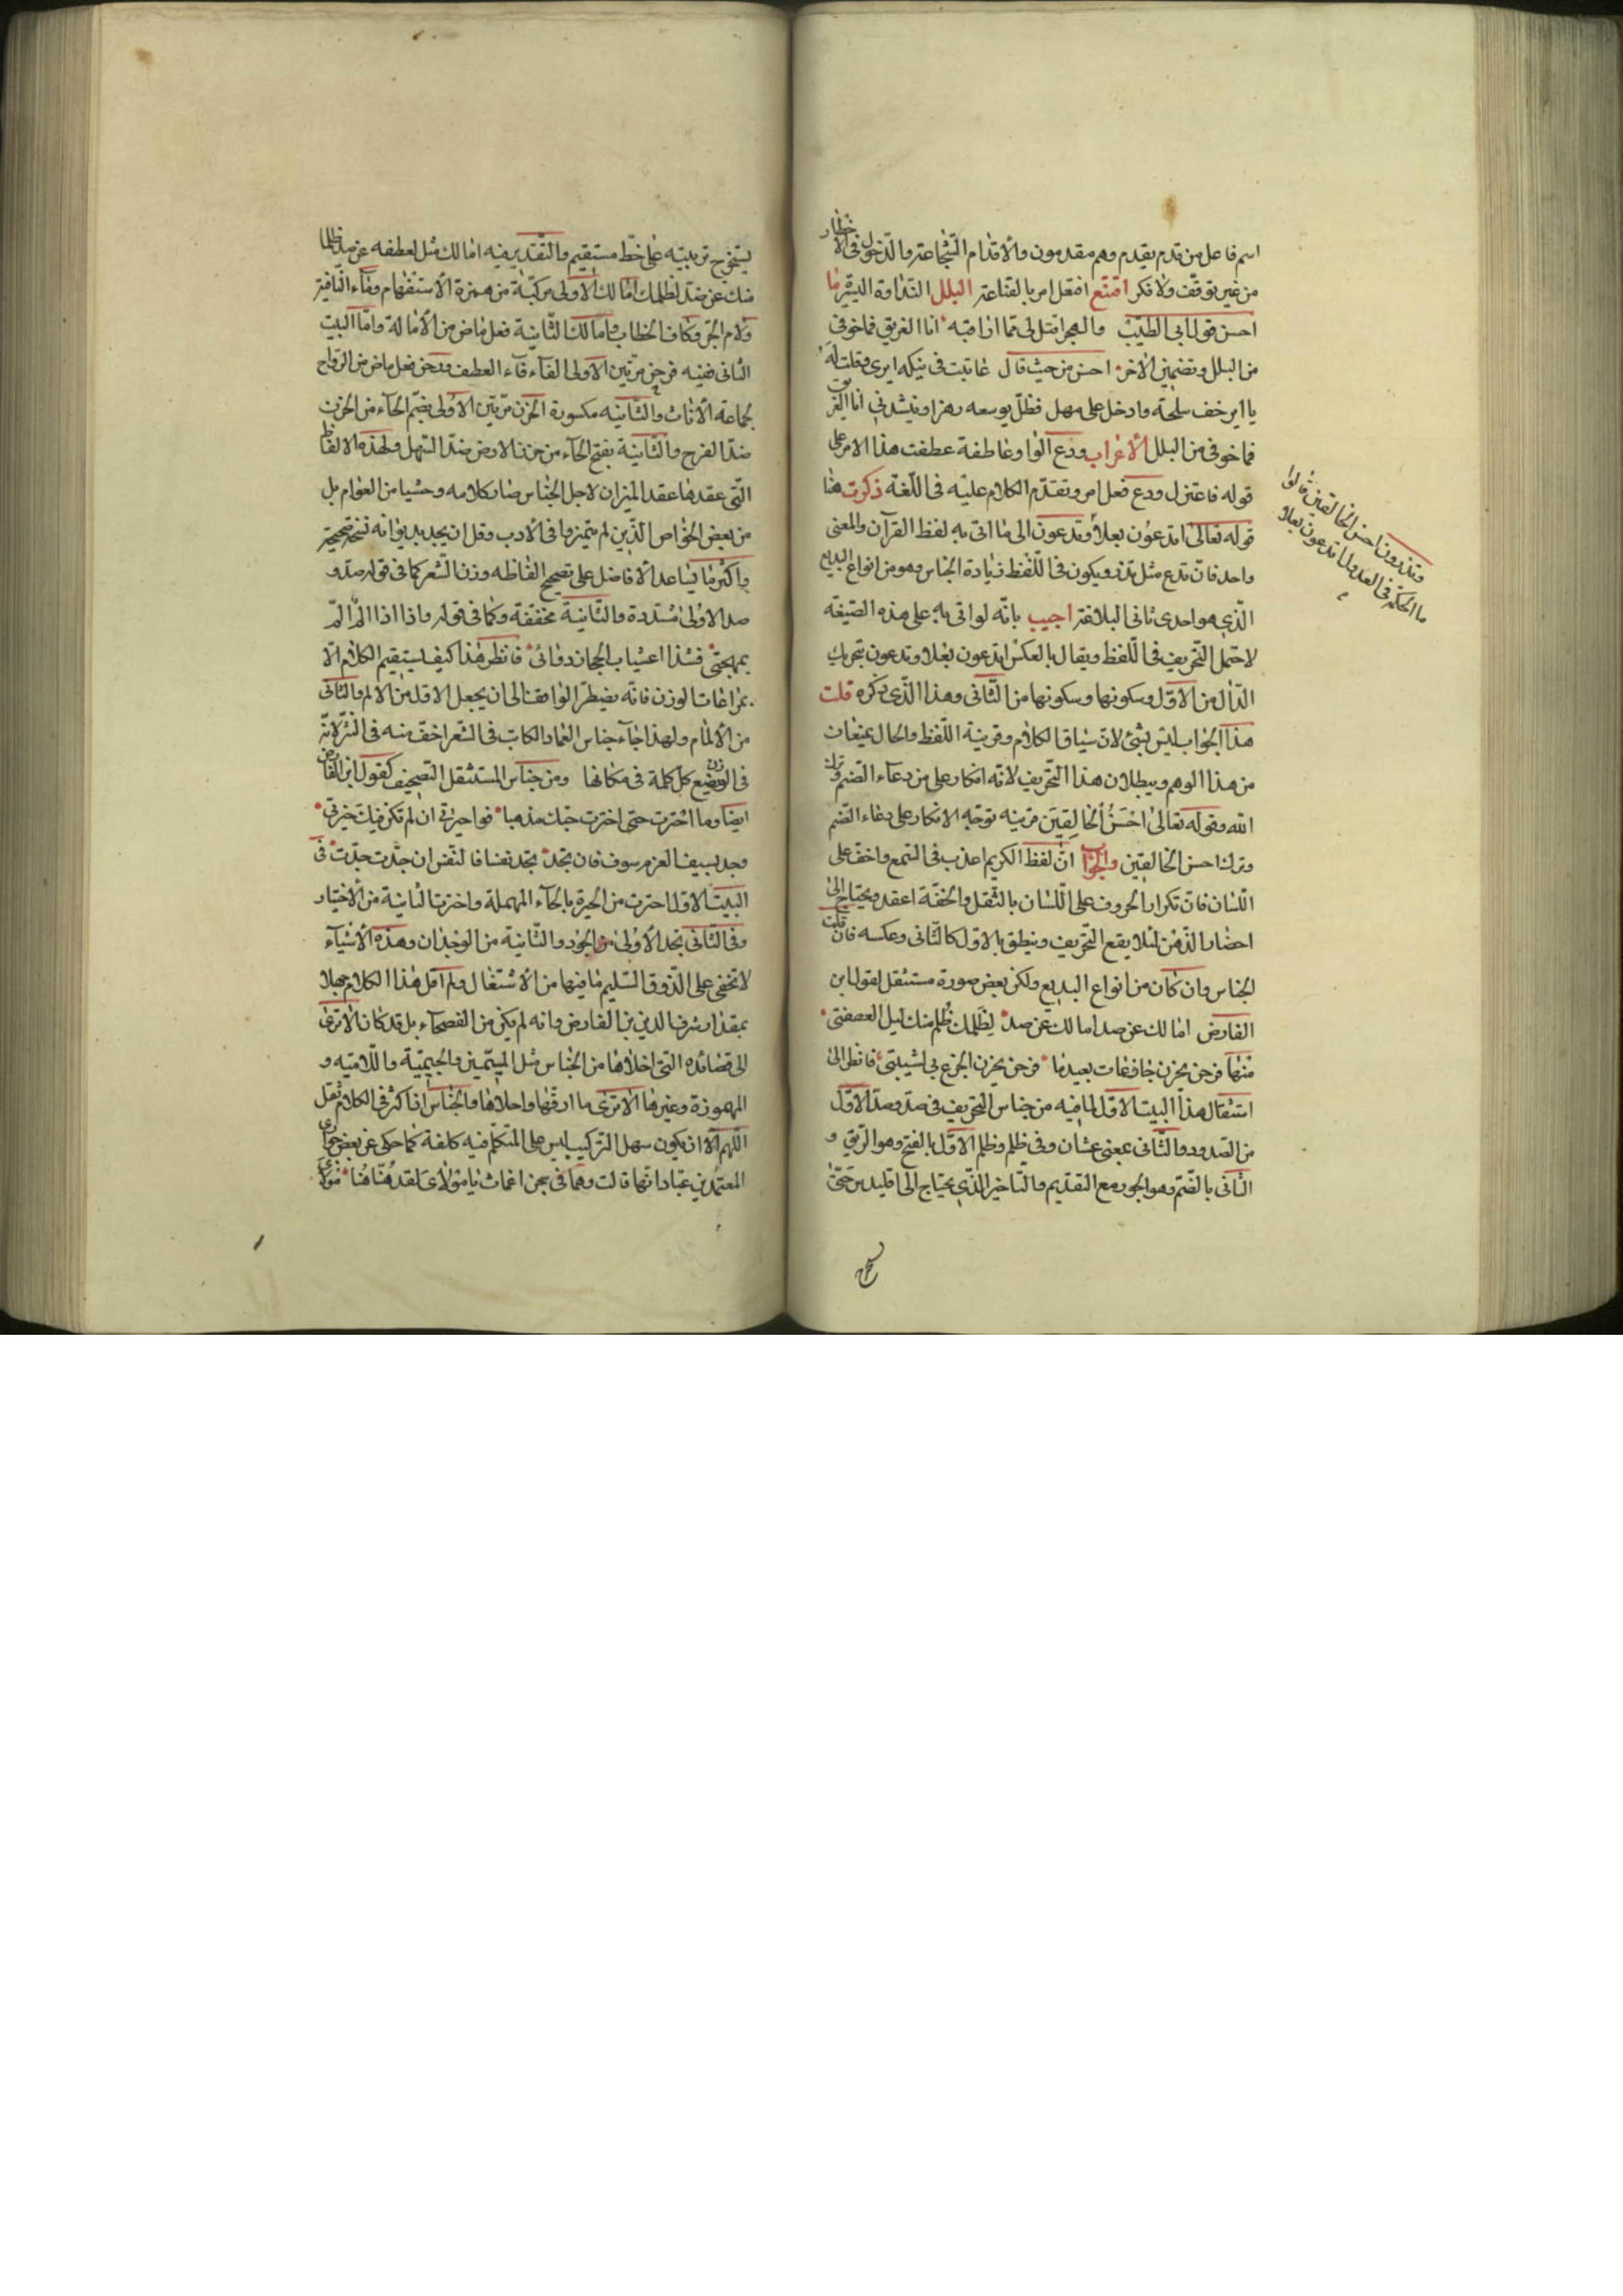 اسم فاعل من قدم يقدم وهم مقدمون والاقدام الشجاعة والدخول فى الاخطار
من غير توقف ولا فكر اقتنع افتعل امر بالقناعة البلل النداوة اليسيرة ما
احسن قول ابى الطيب والهجر اقتل لى مما اراقبه انا الغريق فما خوفى
من البلل وتضمين الاخر احسن من حيث قال عاتبت فى نيكه ايرى وقلت له
يا اير خف سلحه وادخل على مهل فظل يوسعه رهزا وينشدنى انا الغريق
فما خوفى من البلل الاعراب ودع الواو عاطفة عطفت هذا الامر على
قوله فاعتزل ودع فعل امر وتقدم الكلام عليه فى اللغة ذكرت هنا
قوله تعالى اتدعون بعلا وتدعون الى ما اتى به لفظ القرآن والمعنى
واحد فان تدع مثل تذر ويكون فى اللفظ زيادة الجناس وهو من انواع البديع
الذى هو احدى ثانى البلاغة اجيب بانه لو اتى به على هذه الصيغة
لاحتمل التحريف فى اللفظ ويقال بالعكس اتدعون بعلا وتدعون بتحريك
الدال من الاول وسكونها وسكونها من الثانى وهذا الذى ذكره قلت
هذا الجواب ليس بشئ لان سياق الكلام وقرينة اللفظ والحال يمنعان
من هذا الوهم ويبطلان هذا التحريف لانه انكار على من دعاء الصنم وترك
الله وقوله تعالى احسن الخالقين قرينه توجه الانكار على دعاء الصنم
وترك احسن الخالقين والجواب ان لفظ الكريم اعذب فى السمع واخف على
اللسان فان تكرار الحروف على اللسان بالثقل والخفة اعقد ويحتاج الى
احضار الذهن لئلا يقع التحريف وينطق بالاول كالثانى وعكسه فان قلت
الجناس وان كان من انواع البديع ولكن بعض صورة مستثقل لقول ابن
الفارض امالك عن صد امالك عن صد لظلمك ظلم منك ليل العصفتى
منها فرحن بحزن جازعات بعيدما فرحن بحزن الجزع بى لشيبتى فانظر الى
استثقال هذا البيت الاول لما فيه من جناس التحريف فى صد وصد الاول
من الصدود والثانى بمعنى عشان وفى ظلم وظلم الاول بالفتح وهو الريق و
الثانى بالضم وهو الجور مع التقديم والتاخير الذى يحتاج الى اقليدس حتى
وتذرون احسن الخالقين قالوا
ما الحكمة فى العدول اتدعون بعلا
يستخرج تربيته على خط مستقيم والتقدير فيه امالك مثل لعطفه عن صد ظلما
منك عن صد لظلمك امالك الاولى مركبة من همزة الاستفهام وفاء النافية
ولام الجر وكاف الخطاب وامالك الثانية فعل ماض من الامالة واما البيت
الثانى ففيه فرحن مرتين الاولى الفاء فاء العطف ورحن فعل ماض من الرواح
لجماعة الاناث والثانيه مكسورة الحزن مرتين الاولى بضم الحاء من الحزن
ضد الفرح والثانية بفتح الحاء من حزن الارض ضد السهل ولهذه الالفاظ
التى عقدها عقد الميزان لاجل الجناس صار كلامه وحشيا من العوام بل
من بعض الخواص الذين لم يتميزوا فى الادب وقل ان يجد بديوانه نسخة صحيحة
واكثر ما يساعد الافاضل على تصحيح الفاظه وزن الشعر كما فى قوله صد و
صد الاولى مشددة والثانية مخففة وكما فى قوله واذا اذا الم الم
بمهجتى فشذا اعشاب الحجاز دوائى فانظر هذا كيف ليستقيم الكلام الا
بمراعات الوزن فانه يضطر الواقف الى ان يجعل الاول من الالم والثانى
من الالمام ولهذا جاء جناس العماد الكاتب فى الشعر اخف منه فى النثر لانه
فى الوزن يضع كل كلمة فى مكانها ومن جناس المستثقل التصحيف كقول ابن الفارض
ايضا وما احترت حتى اخترت حبك مذهبا فواحيرتى ان لم تكن فيك خيرتى
وجد بسيف العزم سوف فان تجد تجد نفسا فالنفس ان جدت جدت فى
البيت الاول احترت من الحيرة بالحاء المهملة واخترت الثانية من الاختيار
وفى الثانى تجد الاولى من الجود والثانية من الوجدان وهذه الاشياء
لا تخفى على الذوق السليم ما فيها من الاستثقال ولم اقل هذا الكلام جهلا
بمقدار شرف الدين بن الفارض وانه لم يكن من الفصحاء بل قد كان الا ترى
الى قصائده التى اخلاها من الجناس مثل الميميتين والجيمية واللاميه و
المهموزة وغيرها الا ترى ما ارقها واحلاها والجناس اذا كثر فى الكلام ثقل
اللهم الا ان يكون سهل التركيب ليس على المتكلم فيه كلفة كما حكى عن بعض جوارى
المعتمد بن عباد انها قالت وهما فى سجن اغمات يا مولاى لقد هنا هنا مولاى